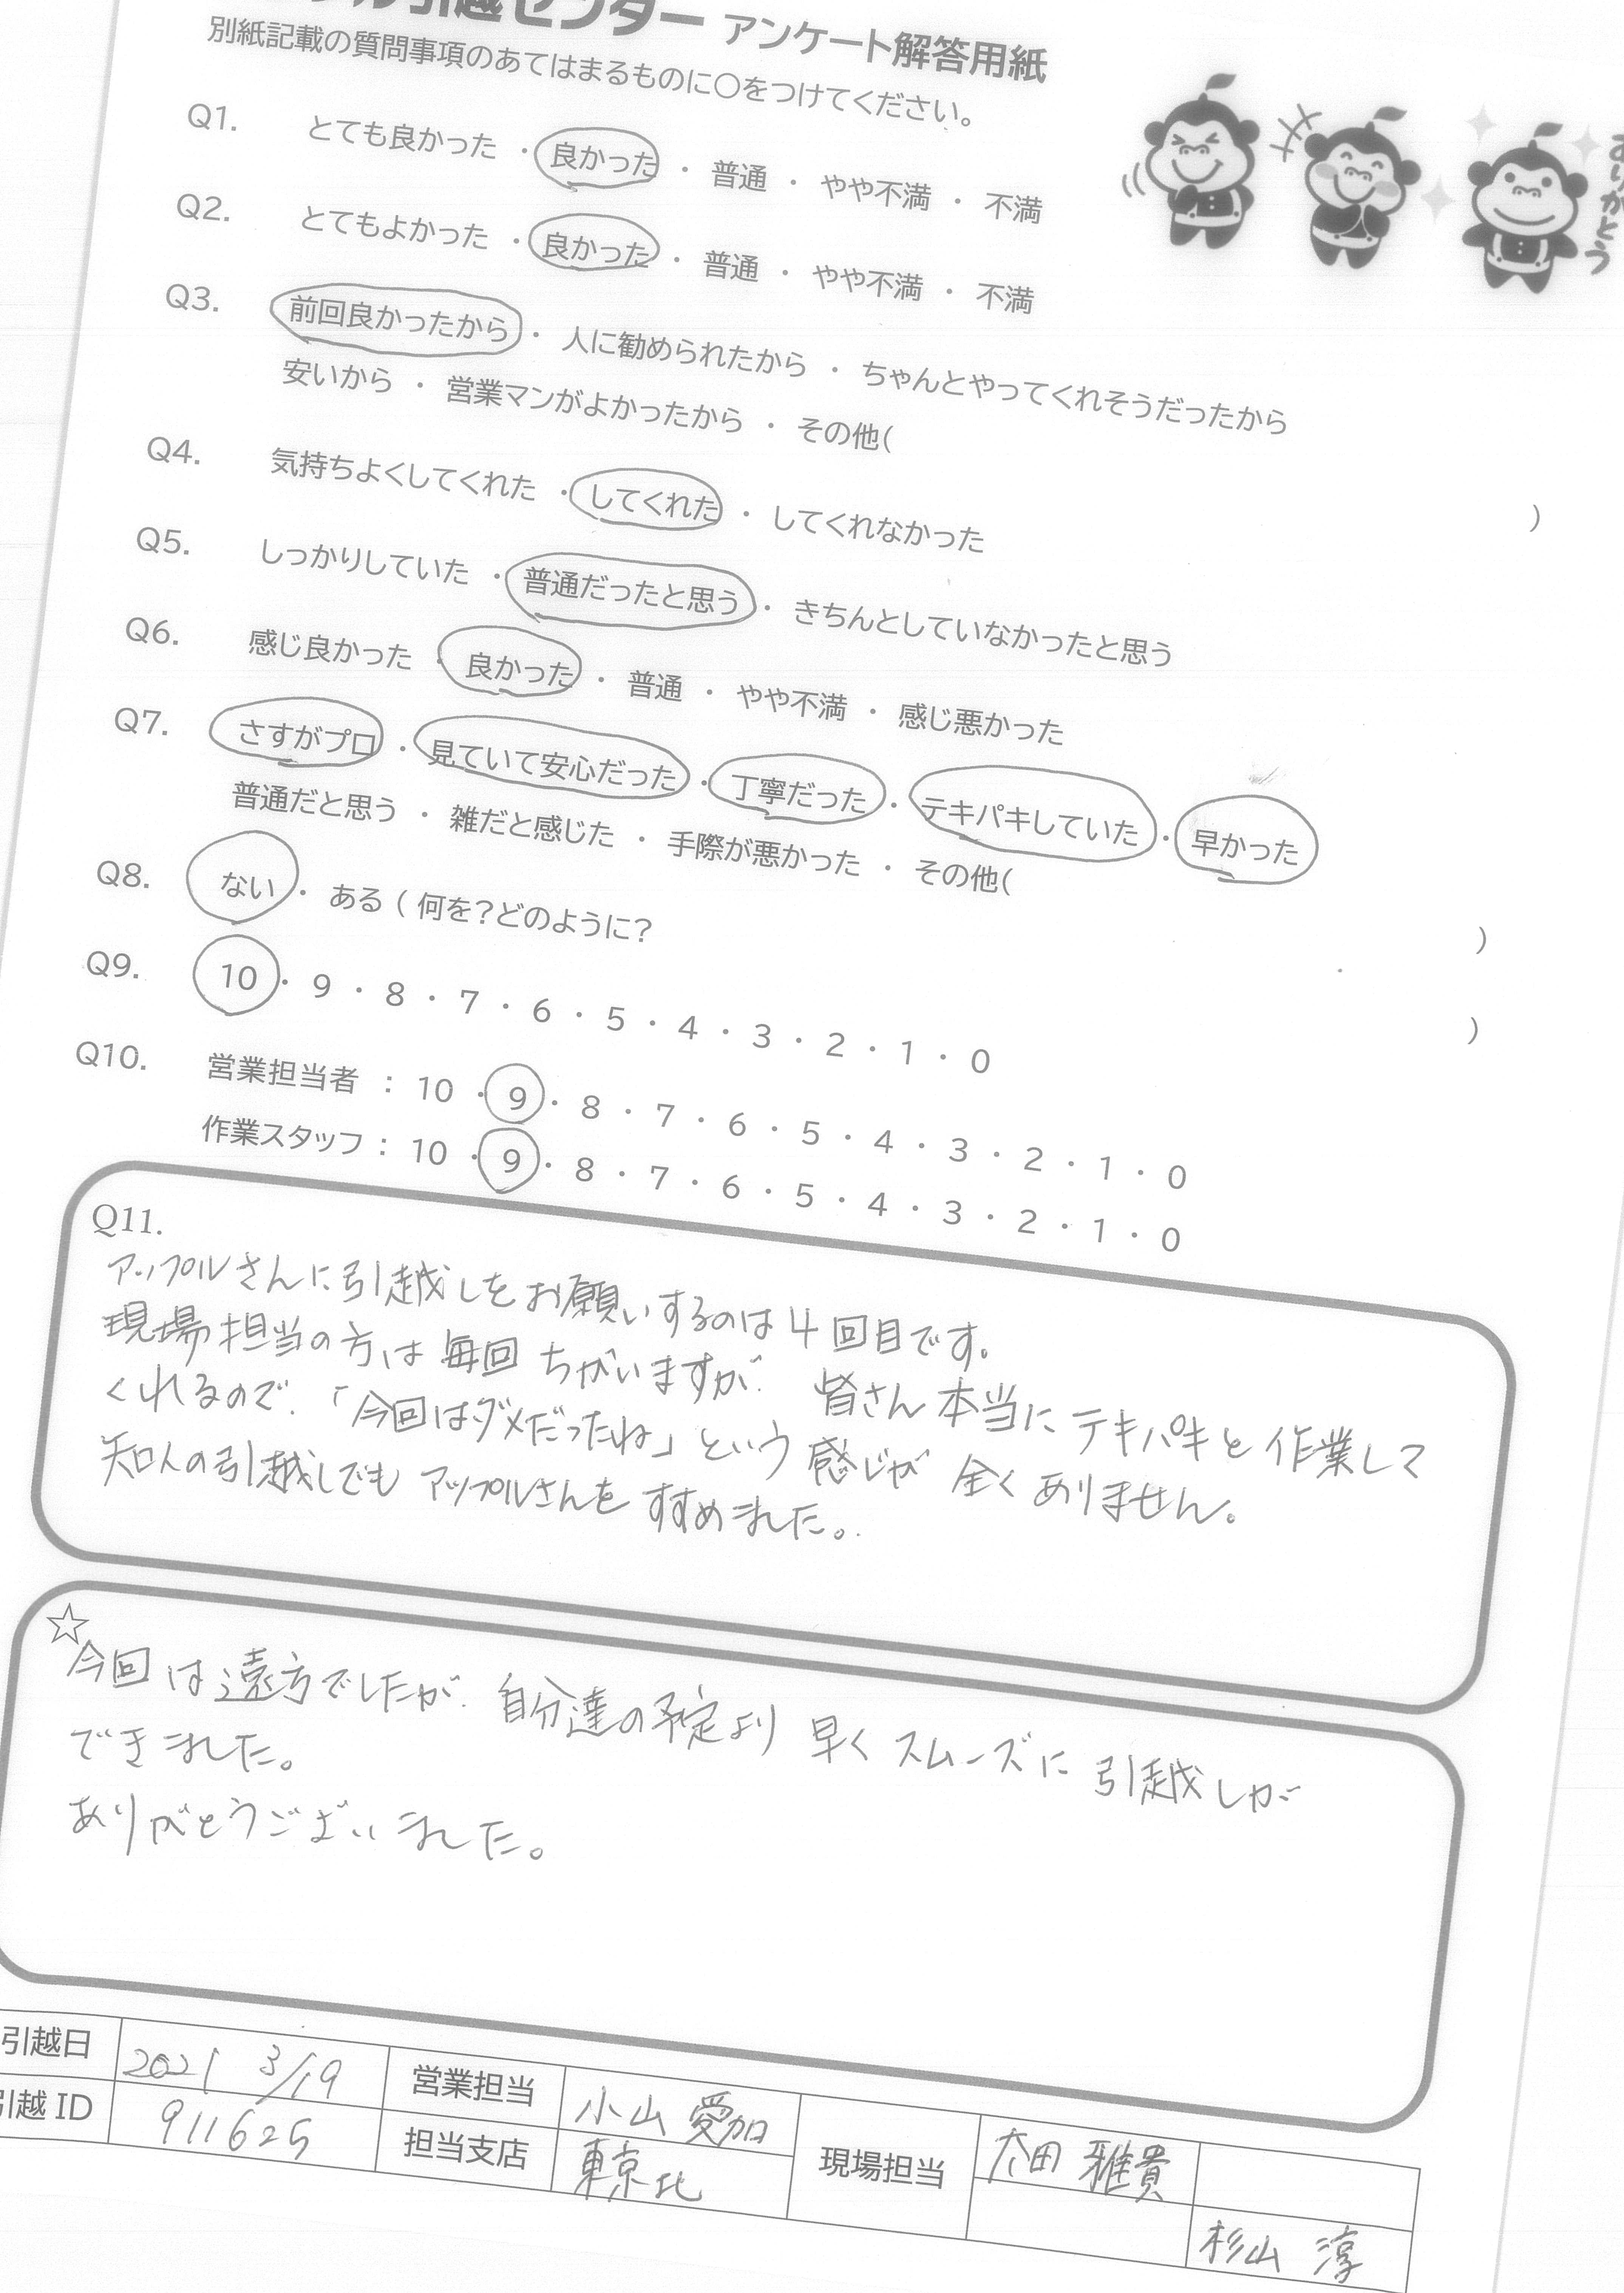 引越センター アンケート解答用紙
別紙記載の質問事項のあてはまるものに○をつけてください。
ありがとう
Q1. とても良かった ・ 良かった ・ 普通 ・ やや不満 ・ 不満
Q2. とてもよかった ・ 良かった ・ 普通 ・ やや不満 ・ 不満
Q3. 前回良かったから ・ 人に勧められたから ・ ちゃんとやってくれそうだったから
安いから ・ 営業マンがよかったから ・ その他( )
Q4. 気持ちよくしてくれた ・ してくれた ・ してくれなかった
Q5. しっかりしていた ・ 普通だったと思う ・ きちんとしていなかったと思う
Q6. 感じ良かった ・ 良かった ・ 普通 ・ やや不満 ・ 感じ悪かった
Q7. さすがプロ ・ 見ていて安心だった ・ 丁寧だった ・ テキパキしていた ・ 早かった
普通だと思う ・ 雑だと感じた ・ 手際が悪かった ・ その他( )
Q8. ない ・ ある ( 何を?どのように? )
Q9. 10 ・ 9 ・ 8 ・ 7 ・ 6 ・ 5 ・ 4 ・ 3 ・ 2 ・ 1 ・ 0
Q10. 営業担当者 : 10 ・ 9 ・ 8 ・ 7 ・ 6 ・ 5 ・ 4 ・ 3 ・ 2 ・ 1 ・ 0
作業スタッフ : 10 ・ 9 ・ 8 ・ 7 ・ 6 ・ 5 ・ 4 ・ 3 ・ 2 ・ 1 ・ 0
Q11.
アップルさんに引越しをお願いするのは4回目です。
現場担当の方は毎回ちがいますが、皆さん本当にテキパキと作業して
くれるので、「今回はダメだったね」という感じが全くありません。
知人の引越しでもアップルさんをすすめました。
☆
今回は遠方でしたが、自分達の予定より早くスムーズに引越しが
できました。
ありがとうございました。
引越日 2021 3/19 営業担当 小山 愛加 現場担当 太田 雅貴
引越 ID 911625 担当支店 東京北 杉山 淳